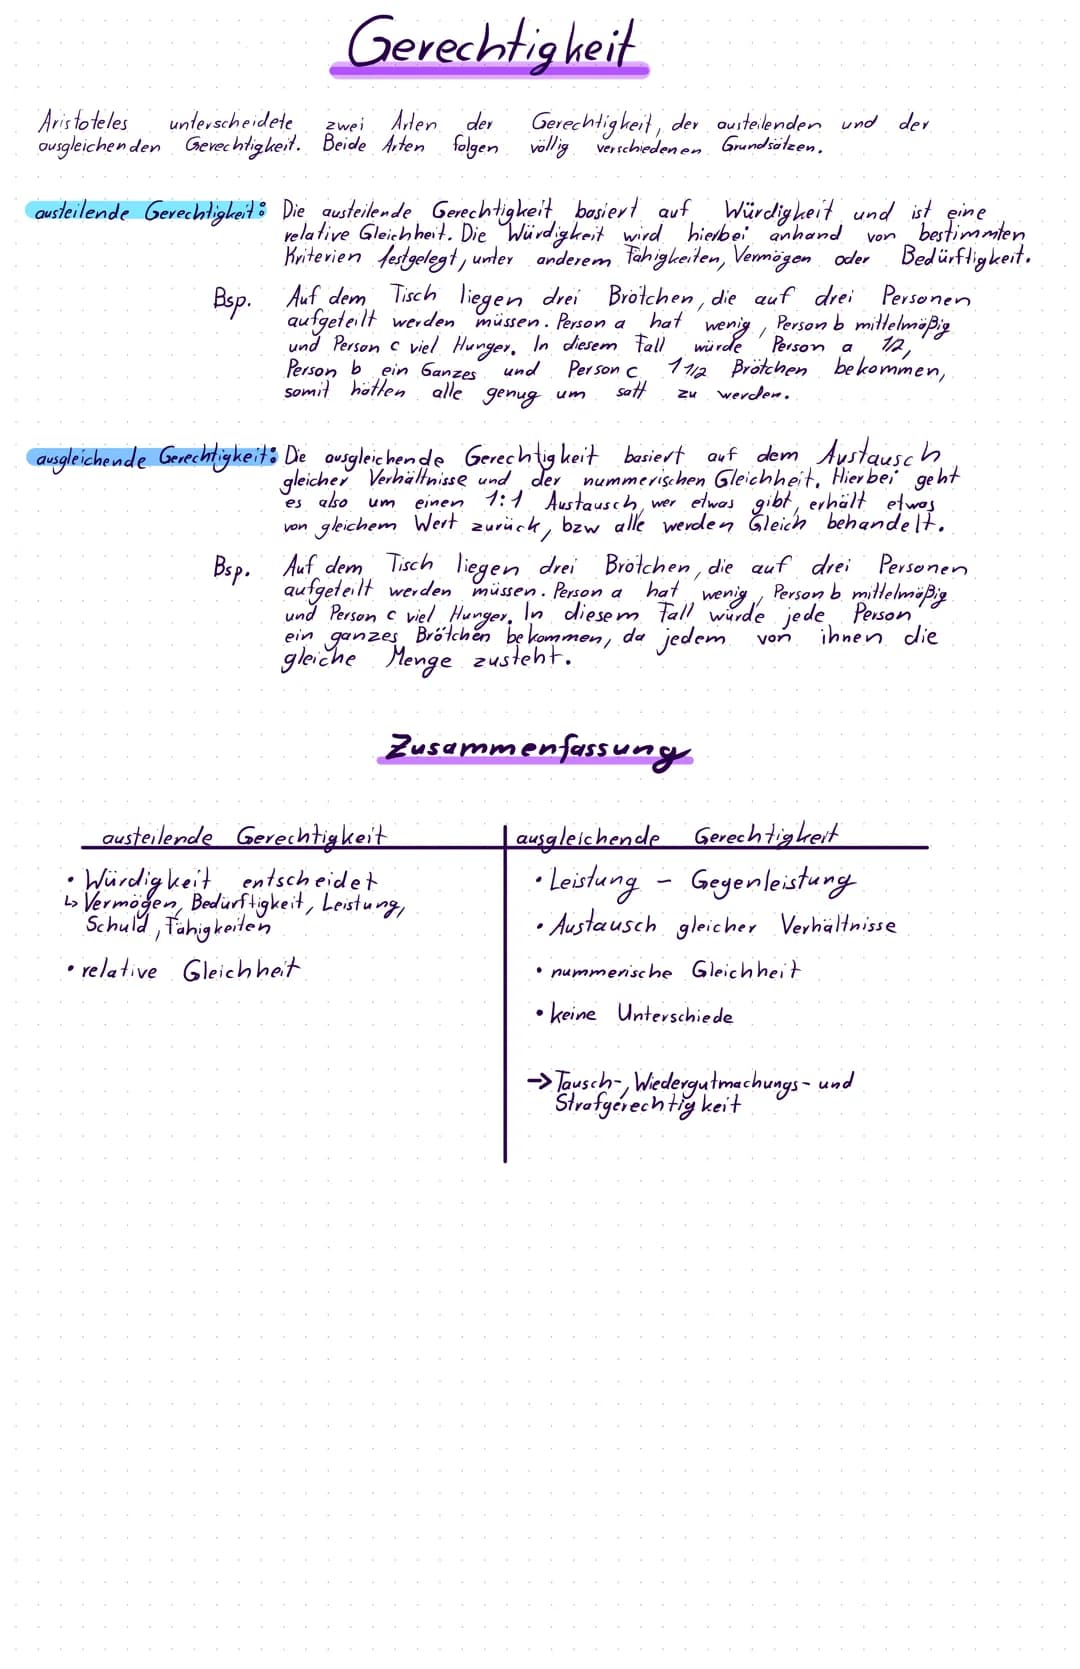 Gerechtigkeit
Aristoteles unterscheidete zwei Arten der Gerechtigkeit, der austeilenden und der
ausgleichenden Gerechtigkeit. Beide Arten folgen völlig verschiedenen Grundsätzen.
austeilende Gerechtigkeit: Die austeilende Gerechtigkeit basiert auf Würdigkeit und ist eine
relative Gleichheit. Die Würdigkeit wird hierbei anhand von bestimmten
Kriterien festgelegt, unter anderem Fähigkeiten, Vermögen oder Bedürftigkeit.
Bsp. Auf dem Tisch liegen drei Brötchen, die auf drei Personen
aufgeteilt werden müssen. Person a hat wenig, Person b mittelmäßig
und Person c viel Hunger. In diesem Fall würde Person a 1/2,
Person b ein Ganzes und Person c 1 1/2 Brötchen bekommen,
somit hätten alle genug um satt zu werden.
ausgleichende Gerechtigkeit: Die ausgleichende Gerechtigkeit basiert auf dem Austausch
gleicher Verhältnisse und der nummerischen Gleichheit. Hierbei geht
es also um einen 1:1 Austausch, wer etwas gibt, erhält etwas
von gleichem Wert zurück, bzw alle werden Gleich behandelt.
Bsp. Auf dem Tisch liegen drei Brötchen, die auf drei Personen
aufgeteilt werden müssen. Person a hat wenig, Person b mittelmäßig
und Person c viel Hunger. In diesem Fall würde jede Person
ein ganzes Brötchen bekommen, da jedem von ihnen die
gleiche Menge zusteht.
Zusammenfassung
austeilende Gerechtigkeit
• Würdigkeit entscheidet
↳ Vermögen, Bedürftigkeit, Leistung,
Schuld, Fähigkeiten
• relative Gleichheit
ausgleichende Gerechtigkeit
• Leistung - Gegenleistung
• Austausch gleicher Verhältnisse
• nummerische Gleichheit
• keine Unterschiede
→ Tausch-, Wiedergutmachungs- und
Strafgerechtigkeit